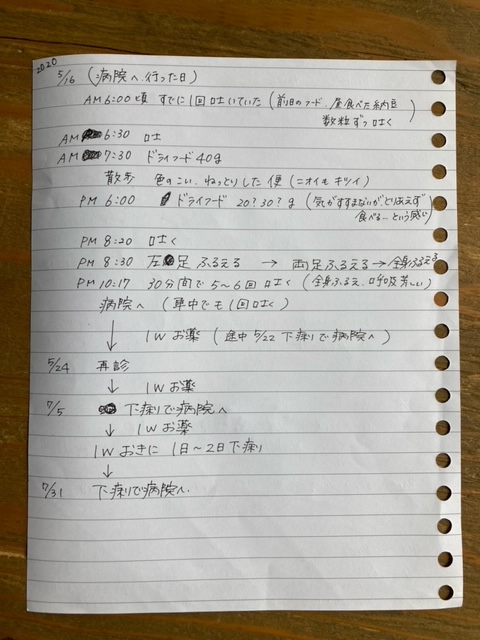 2020
5/16 (病院へ行った日)
AM 6:00頃 すでに1回吐いていた (前日のフード、昼食べた納豆
数粒ずつ吐く)
AM 6:30 吐
AM 7:30 ドライフード40g
散歩 色のこい、ねっとりした便 (ニオイもキツイ)
PM 6:00 ドライフード 20?30?g (気がすすまないがとりあえず
食べる…という感じ)
PM 8:20 吐く
PM 8:30 左足ふるえる → 両足ふるえる → 全身ふるえる
PM 10:17 30分間で5〜6回吐く (全身ふるえ、呼吸苦しい)
病院へ (車中でも1回吐く)
↓ 1Wお薬 (途中 5/22 下痢で病院へ)
5/24 再診
↓ 1Wお薬
7/5 下痢で病院へ
↓ 1Wお薬
1Wおきに 1日〜2日下痢
↓
7/31 下痢で病院へ.